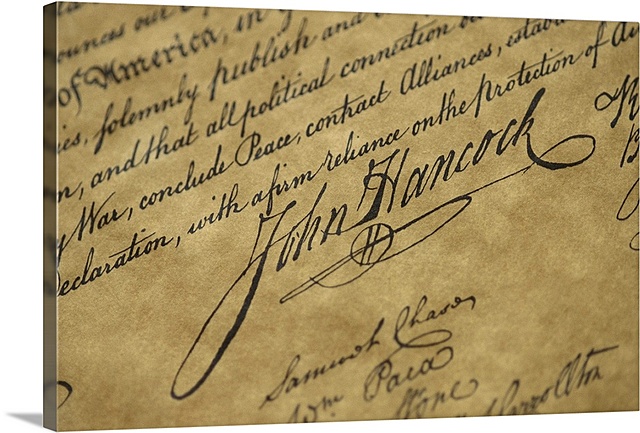 ounces our
of America, in
ies, solemnly publish and
, and that all political connection
War, conclude Peace, contract Alliances, establ
eclaration, with a firm reliance on the protection of
John Hancock
Samuel Chase
Wm Paca
Stone
Carrollton